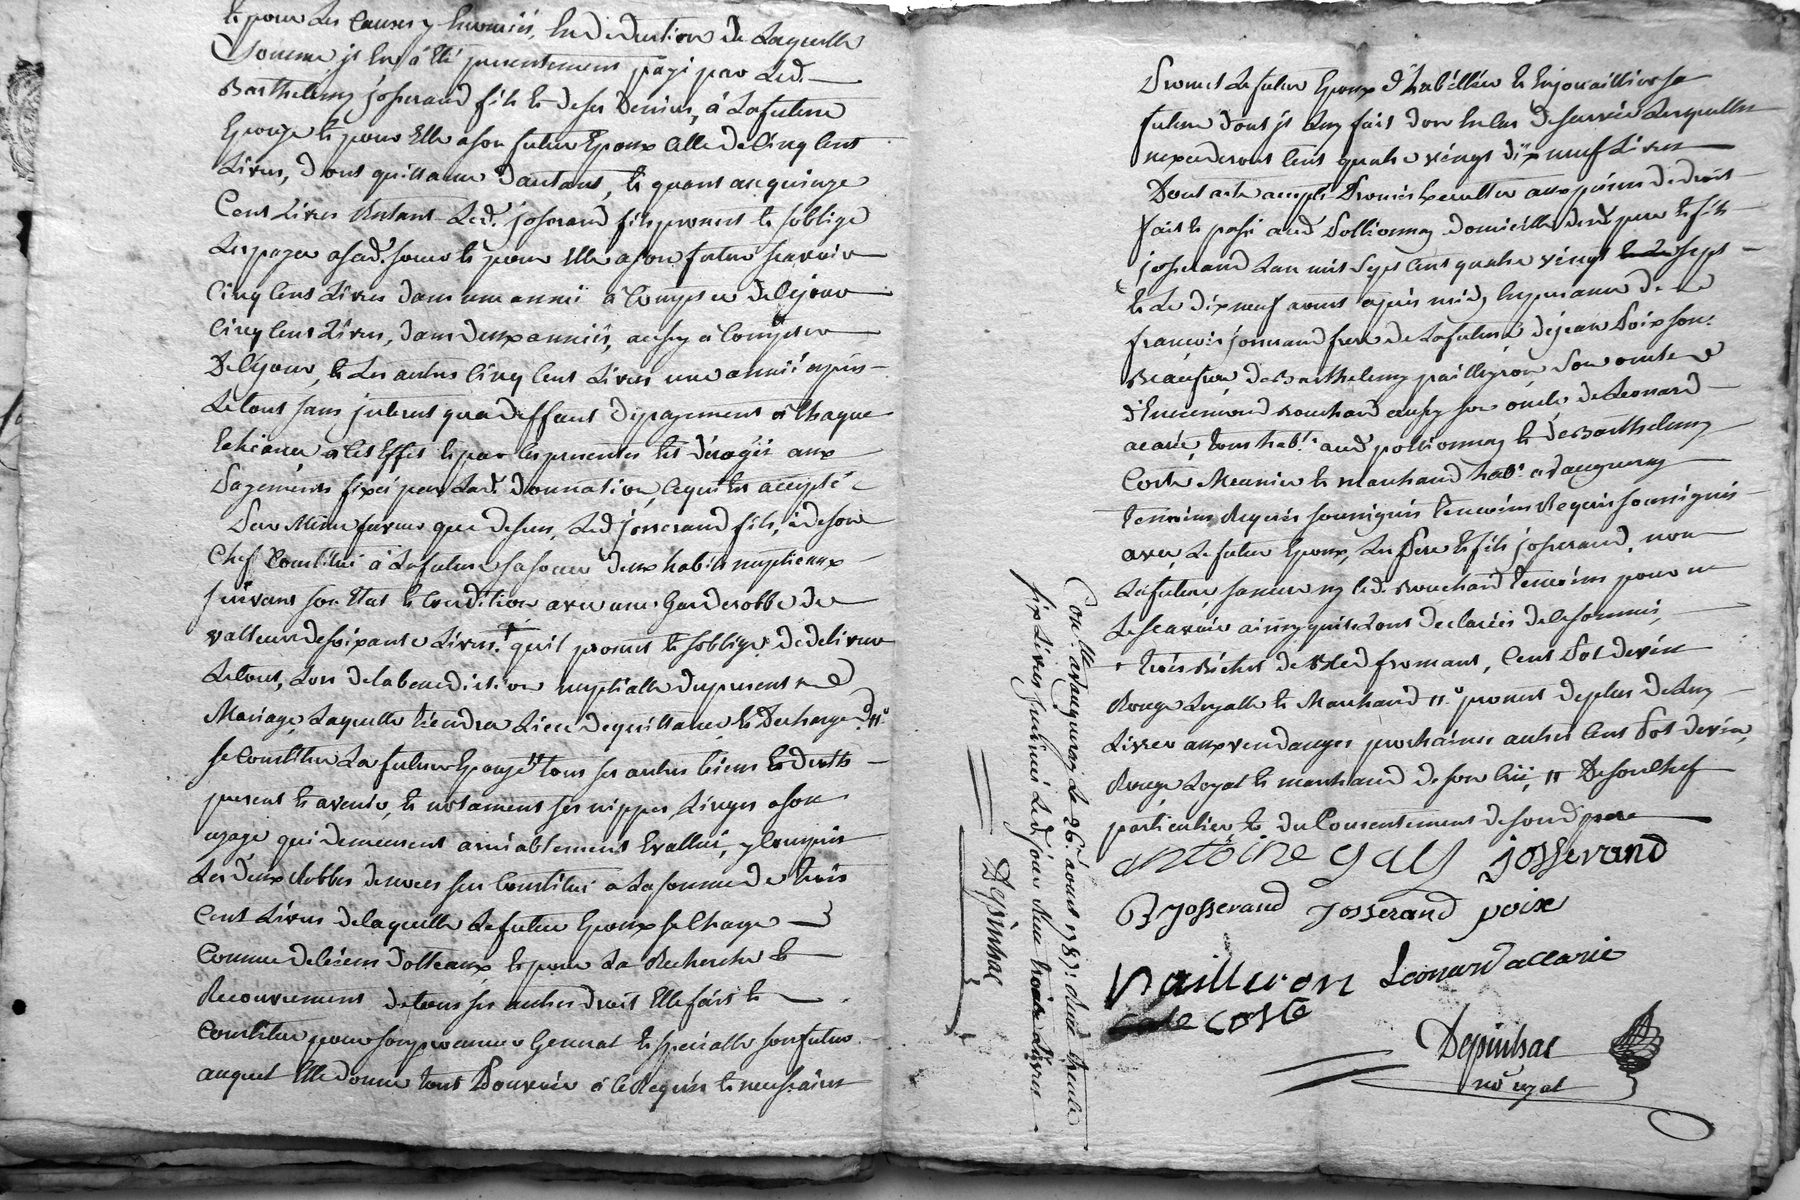 et pour les causes y enoncées, en deduction de laquelle
somme il en a été presentement payé par led.
Barthelemy josserand fils et de ses deniers, à la future
Epouse et pour elle a son futur Epoux celle de cinq cent
Livres, dont quittance d'autant, et quant aux quinze
Cent Livres restant led. josserand fils promet et s'oblige
les payer a sad. soeur et pour elle a son futur scavoir
Cinq cent Livres dans une année à compter de ce jour
Cinq cent Livres, dans deux années, aussy à compter
De ce jour, et les autres cinq cent Livres une année après
Le tout sans interet qu'a deffaut de payement à chaque
echéance à cet effet et par les presentes est dérogé aux
Payements fixés par lad. donnation, ce qui est accepté
Par même faveur que dessus, led josserand fils, a de son
Chef constitué à la future sa soeur deux habits nuptieaux
suivant son Etat et condition avec une garderobbe de
valleur de soixante Livres, qu'il promet et s'oblige de delivrer
Le tout, lors de la benediction nuptialle du present
Mariage, laquelle tiendra Lieu de quittance et decharge
se constitue la future Epouse tous ses autres biens et droits
present et avenir, et notament ses nippes, Linges a son
usage qui demeurent amiablement evallués, y compris
Les deux Robbes de noces sus constitué a la somme de trois
Cent Livres de laquelle le futur Epoux se charge
Comme de biens dotteaux et pour la Recherche et
Recouvrement de tous ses autres droit elle fait et
Constitue pour son procureur general et speciale son futur
auquel elle donne tout Pouvoir à ce Requis et necessaire
Promet le futur Epoux d'habiller et enjouailler sa
future dont il luy fait don en cas de survie lesquelles
nexcederont cent quatre vingt dix neuf Livres
Dont acte accepté Promis executer aux peines de droit
fait et passé aud Pollionnay domicille desd pere et fils
josserand Lan mil sept cent quatre vingt sept
et le dix neuf aoust après midy, en presence de
françois josserand frere de la future de jean Poix son
Beaufrere de Barthelemy pailleron son oncle
d'Ennemond Bouchard aussy son oncle de Leonard
acarie, tous habt. aud pollionnay et de Barthelemy
Coste Meunier et marchand habt. a vaugneray
temoins Requis soussignés temoins Requis soussignés
avec le futur Epoux, les Pere et fils josserand, non
la future sa mere ny led. Bouchard temoins pour ne
Le scavoir ainsy quils ont declaré de ce sommés,
trois Bichet de Bled froment, Cent Pot de vin
Rouge Loyalle et Marchand promet de plus de luy
Livrer aux vendanges prochaines autres cent Pot de vin,
Rouge Loyal et marchand de son crû, De son chef
particulier et du Consentement de sond pere
antoine gay josserand
B josserand josserand poix
pailleron Leonard accarie
coste
Depinhac
nore. royal
Conlle. a vaugneray Le 26. aoust 1787. Reçu trente
six Livres
Depinhac